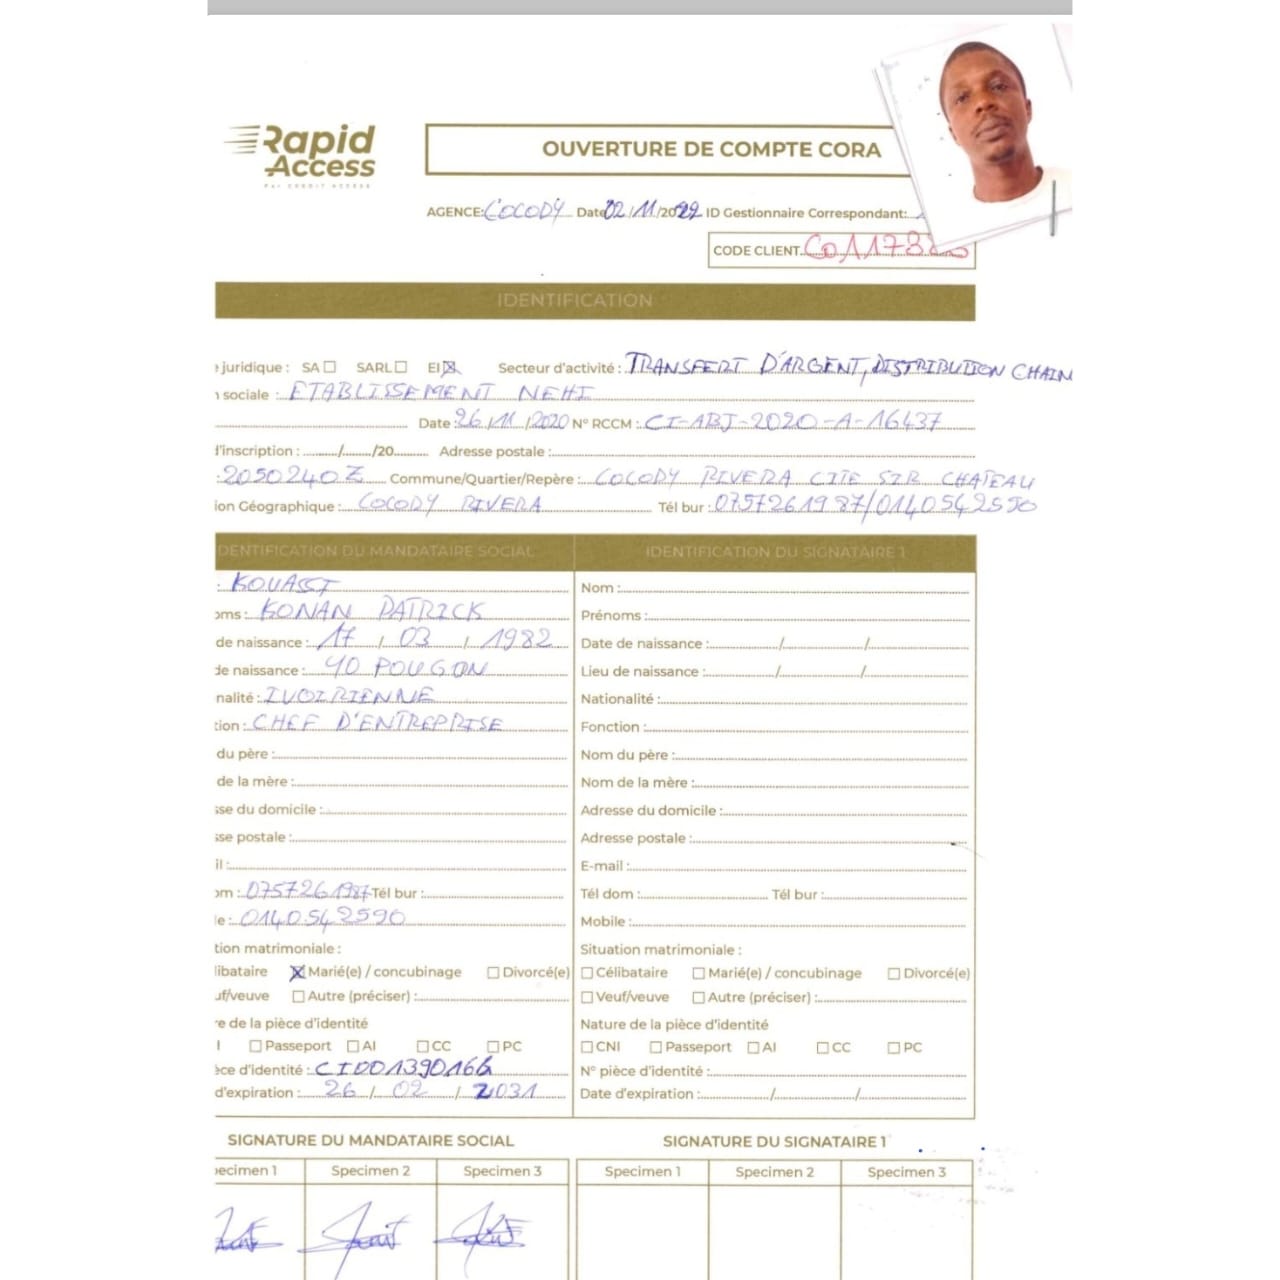 Rapid
Access
PAR CREDIT ACCESS
OUVERTURE DE COMPTE CORA
AGENCE: COCODY Date 02/11/2022 ID Gestionnaire Correspondant:
CODE CLIENT
IDENTIFICATION
juridique : SA SARL EI Secteur d'activité : TRANSFERT D'ARGENT, DISTRIBUTION CHAIN
sociale : ETABLISSEMENT NEHI
Date : 26/11/2020 N° RCCM : CI-ABJ-2020-A-16437
d'inscription : / /20 Adresse postale :
: 2050240Z Commune/Quartier/Repère : COCODY RIVERA CITE SIR CHATEAU
ion Géographique : COCODY RIVERA Tél bur : 0757261987/0140542590
DENTIFICATION DU MANDATAIRE SOCIAL IDENTIFICATION DU SIGNATAIRE 1
: KOUASSI Nom :
oms : KONAN PATRICK Prénoms :
de naissance : 17 / 03 / 1982 Date de naissance : / /
de naissance : YOPOUGON Lieu de naissance : / /
nalité : IVOIRIENNE Nationalité :
tion : CHEF D'ENTREPRISE Fonction :
du père : Nom du père :
de la mère : Nom de la mère :
sse du domicile : Adresse du domicile :
sse postale : Adresse postale :
il : E-mail :
om : 0757261987 Tél bur : Tél dom : Tél bur :
le : 0140542590 Mobile :
tion matrimoniale : Situation matrimoniale :
libataire Marié(e) / concubinage Divorcé(e) Célibataire Marié(e) / concubinage Divorcé(e)
uf/veuve Autre (préciser) : Veuf/veuve Autre (préciser) :
re de la pièce d'identité Nature de la pièce d'identité
I Passeport AI CC PC CNI Passeport AI CC PC
èce d'identité : N° pièce d'identité :
d'expiration : 26 / 02 / 2031 Date d'expiration : / /
SIGNATURE DU MANDATAIRE SOCIAL SIGNATURE DU SIGNATAIRE 1
pecimen 1 Specimen 2 Specimen 3 Specimen 1 Specimen 2 Specimen 3